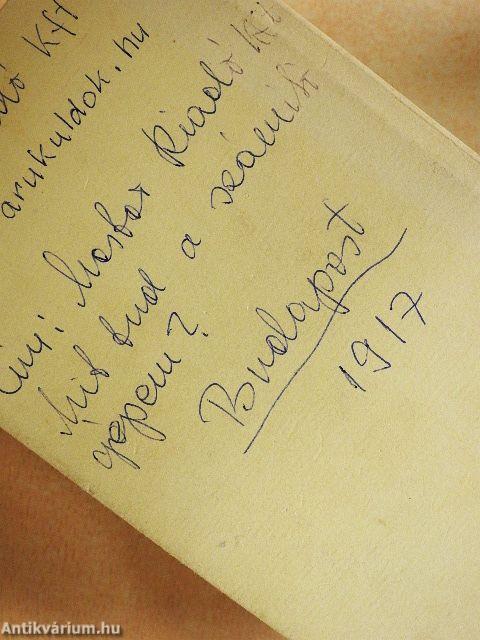 adó Kft
arukuldok.hu
Cím: Mosbax Kiadó Kft
Mit tud a számító
gépem?
Budapost
1917
Antikvárium.hu